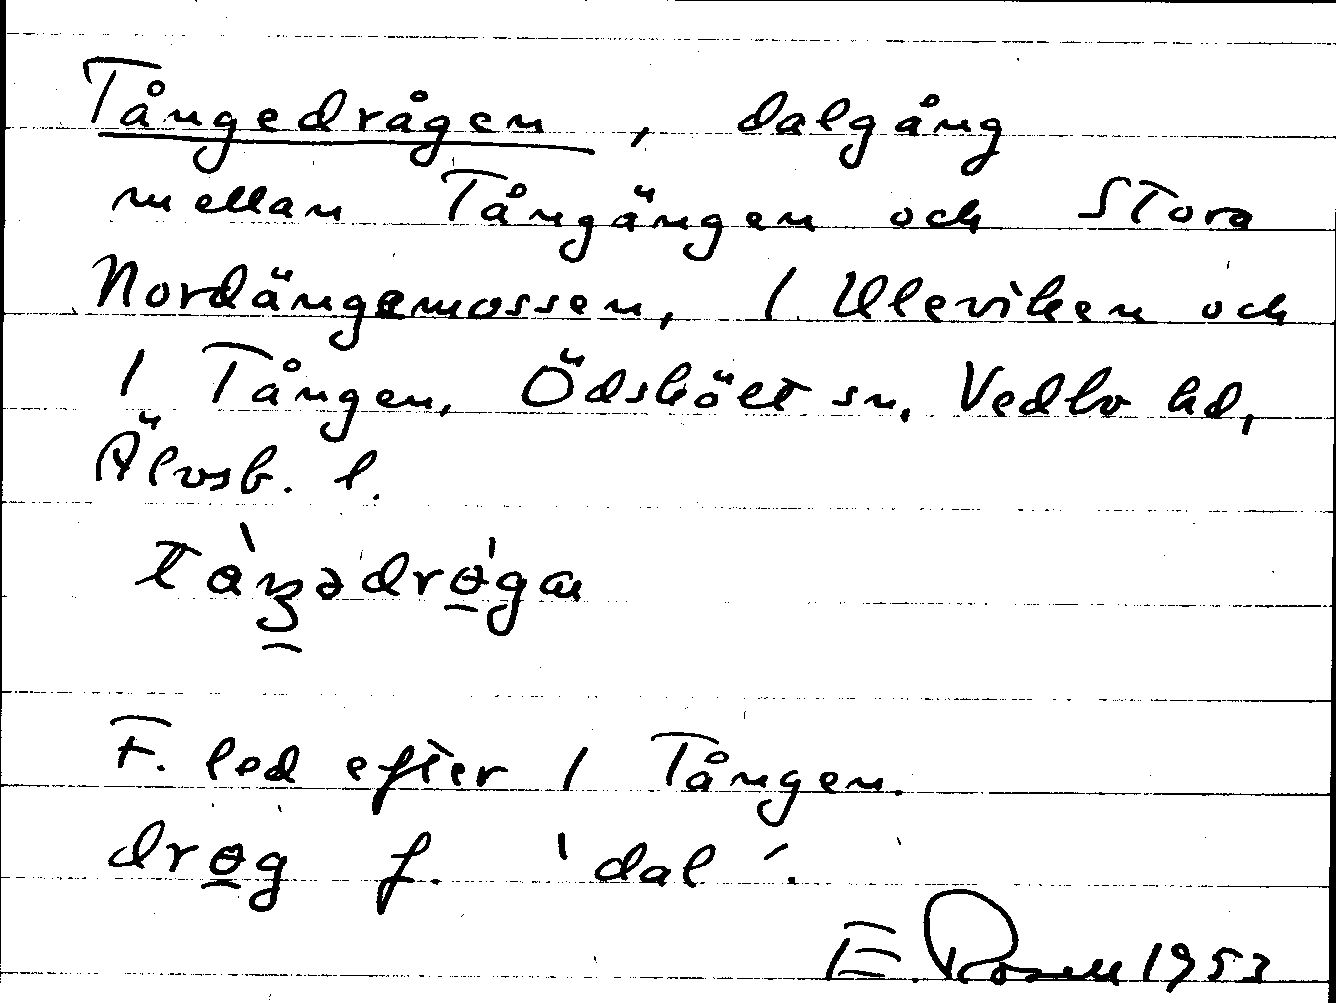 Tångedrågen, dalgång
mellan Tångängen och Stora
Nordängsmossen, 1 Uleviken och
1 Tången, Ödskölt sn, Vedbo hd,
Älvsb. l.
F. led efter 1 Tången.
drɵg f. 'dal'.
E. Rosell 1953